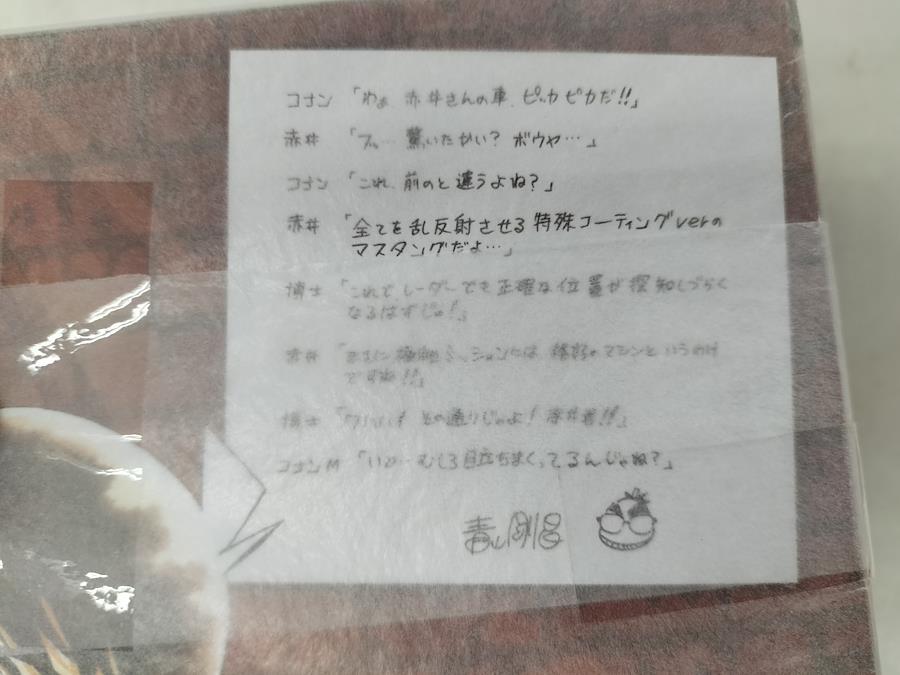 コナン 「わぁ 赤井さんの車、ピッカピカだ!!」
赤井 「フッ… 驚いたかい? ボウヤ…」
コナン 「これ、前のと違うよね?」
赤井 「全てを乱反射させる特殊コーティングverの
マスタングだよ…」
博士 「これで、レーダーでも正確な位置が探知しづらく
なるはずじゃ!」
赤井 「まさに極秘ミッションには 絶好のマシンというわけ
ですね!!」
博士 その通りじゃよ! 赤井君!!」
コナンM 「いや…むしろ目立ちまくってるんじゃね?」
青山剛昌